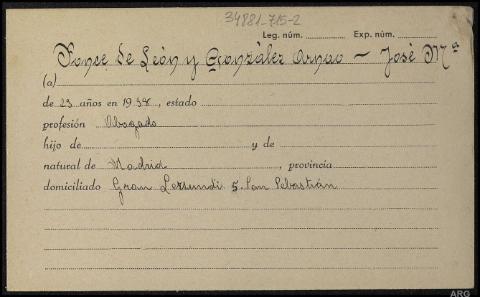 34881-715-2
Leg. núm. Exp. núm.
Ponce de León y González Arnao - José Mª
(a)
de 23 años en 1938, estado
profesión Abogado
hijo de y de
natural de Madrid, provincia
domiciliado Gran Lezsundi 5. San Sebastián
ARG